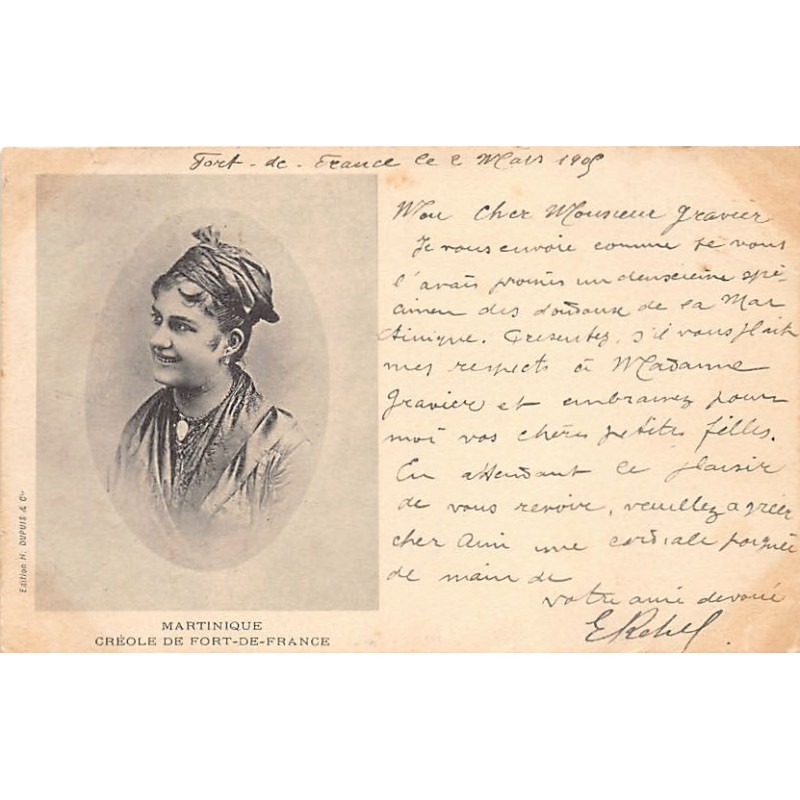 Fort-de-France le 2 Mars 1905
Mon cher Monsieur Gravier
Je vous envoie comme je vous
l'avais promis un deuxième spé-
cimen des doudoux de la Mar
tinique. Présentez, s'il vous plait
mes respects à Madame
Gravier et embrassez pour
moi vos chères petites filles.
En attendant le plaisir
de vous revoir, veuillez agréer
cher Ami une cordiale poignée
de main de
votre ami dévoué
Edition H. DUPUIS & Cie
MARTINIQUE
CRÉOLE DE FORT-DE-FRANCE